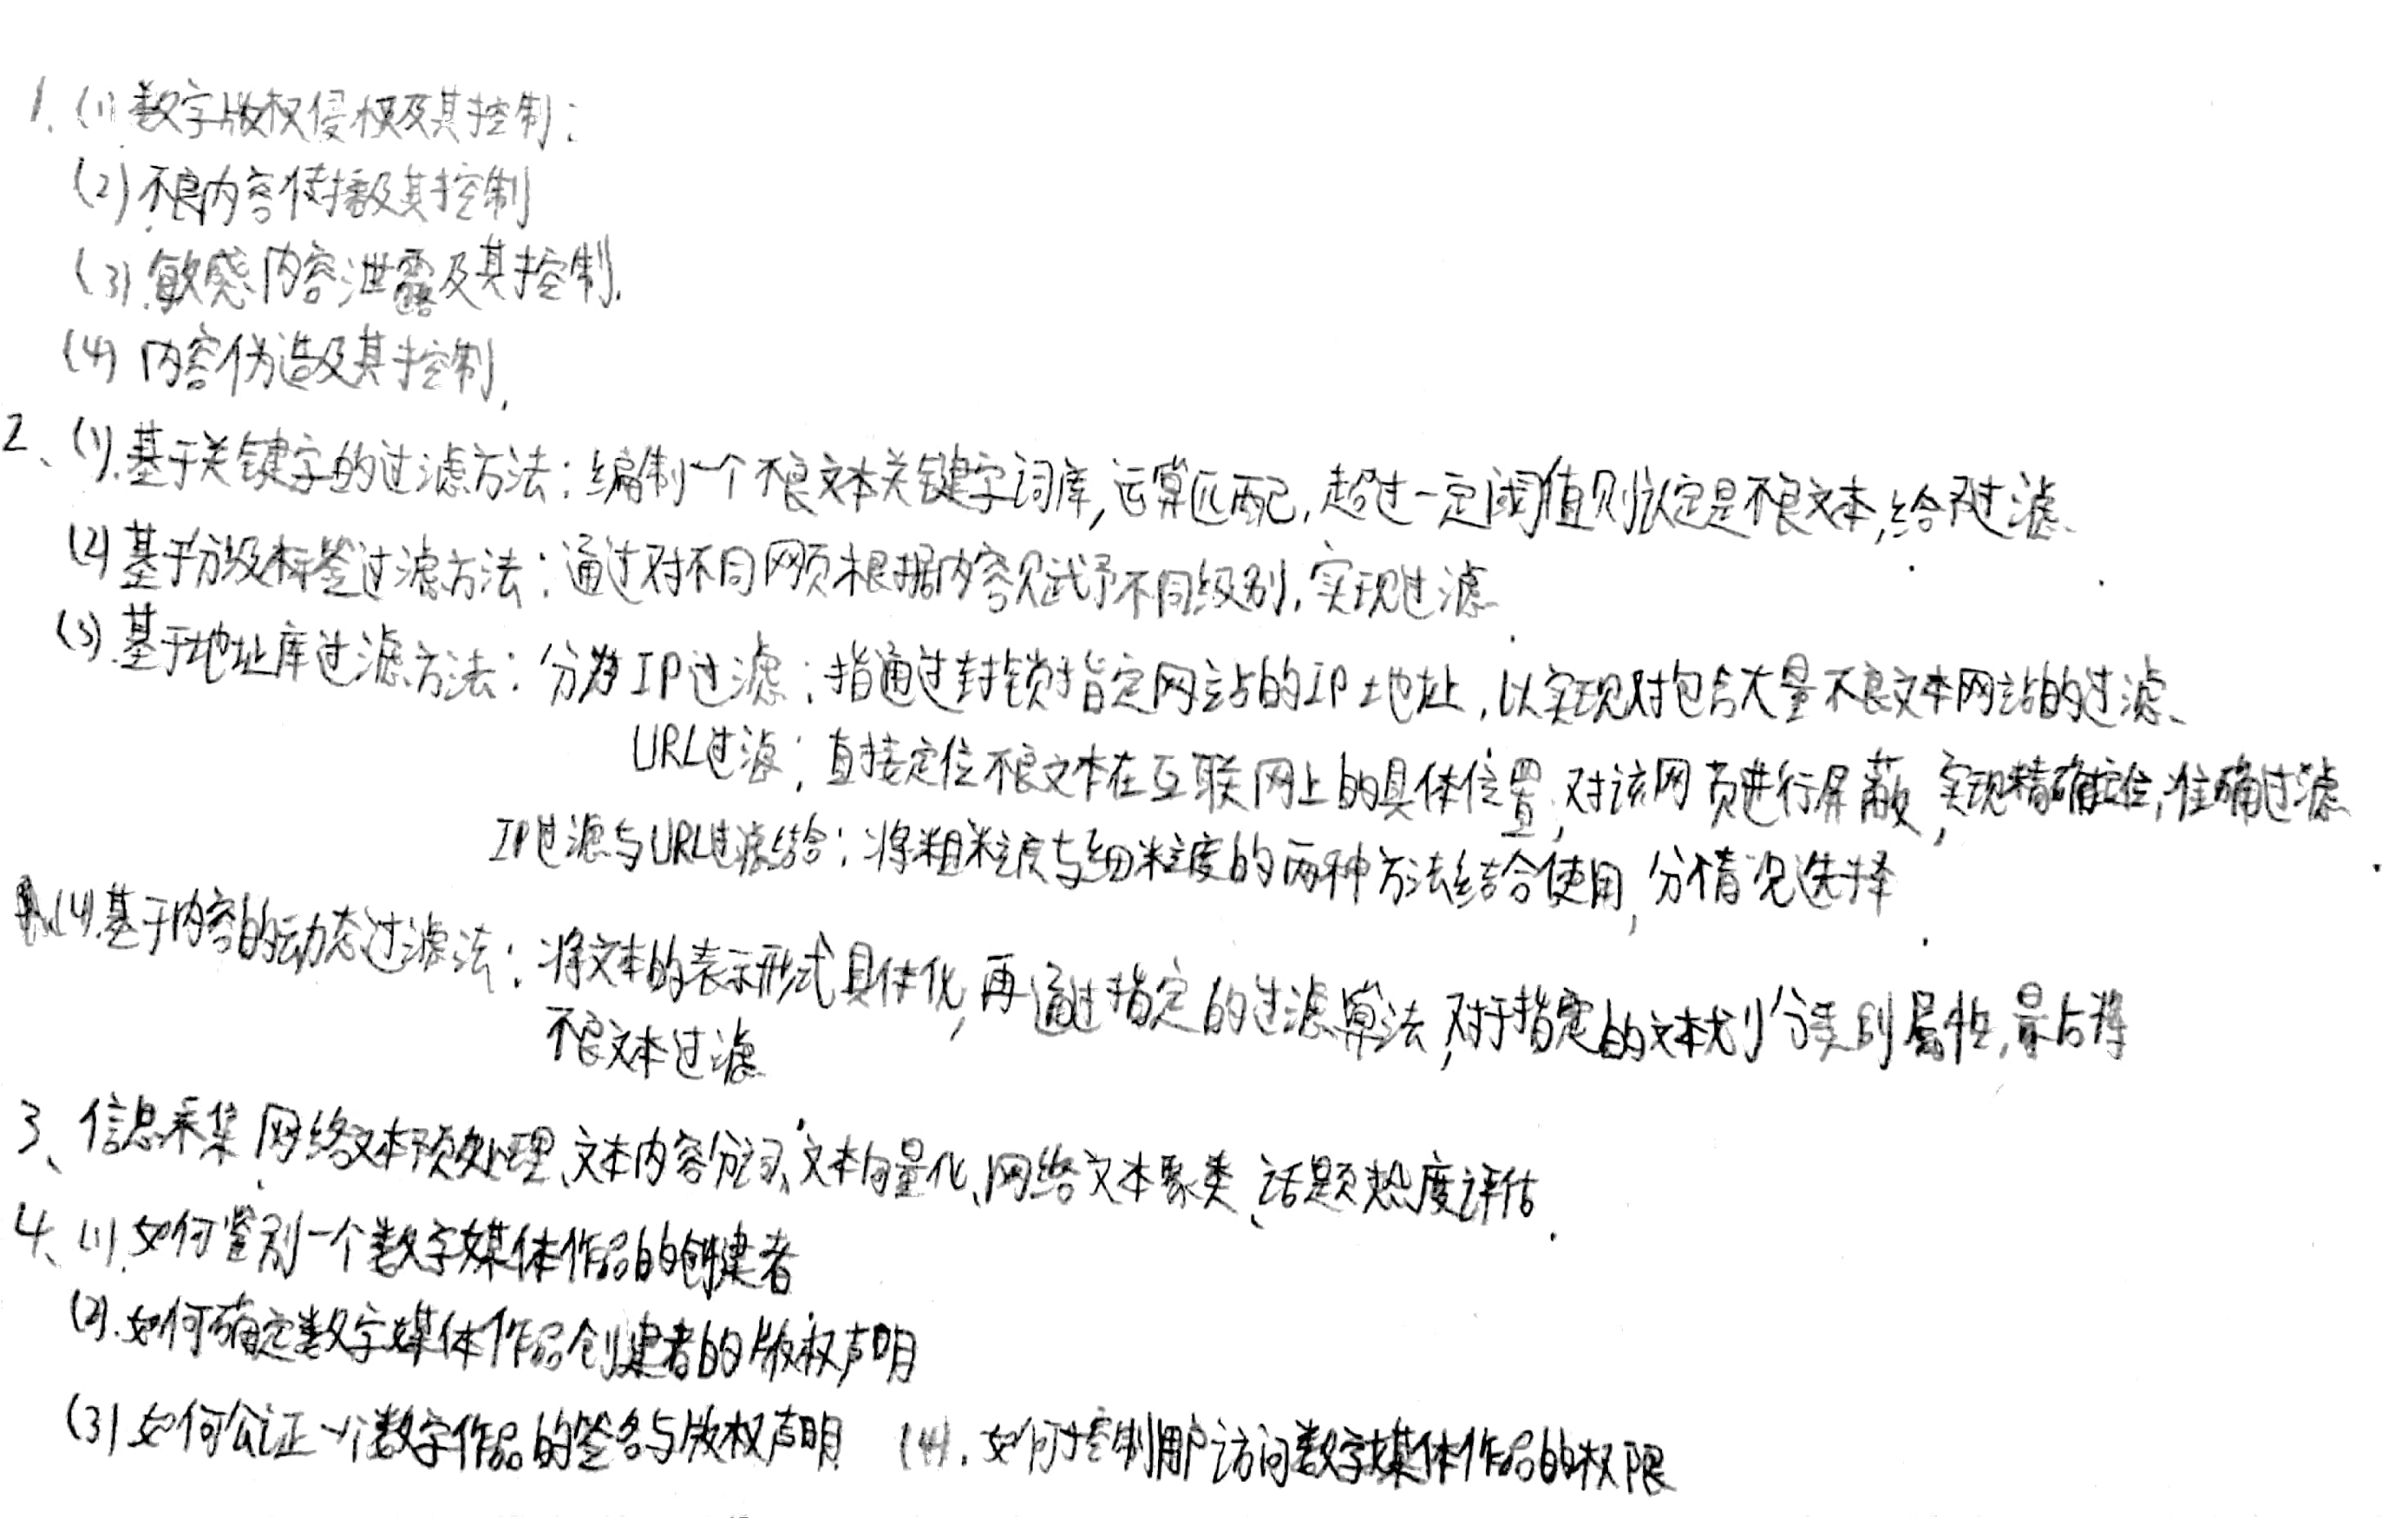 1、(1)数字版权侵权及其控制；
(2)不良内容传播及其控制
(3).敏感内容泄露及其控制.
(4)内容伪造及其控制.
2、(1).基于关键字的过滤方法：编制一个不良文本关键字词库,运算匹配,超过一定阈值则认定是不良文本,给予过滤.
(2)基于分级标签过滤方法：通过对不同网页根据内容赋予不同级别,实现过滤.
(3).基于地址库过滤方法：分为IP过滤：指通过封锁指定网站的IP地址,以实现对包含大量不良文本网站的过滤、
URL过滤：直接定位不良文本在互联网上的具体位置,对该网页进行屏蔽,实现精确定位,准确过滤
IP过滤与URL过滤结合：将粗粒度与细粒度的两种方法结合使用,分情况选择.
(4).基于内容的动态过滤法：将文本的表示形式具体化,再通过指定的过滤算法,对于指定的文本划分类别属性,最后将
不良文本过滤
3、信息采集、网络文本预处理、文本内容分词、文本向量化、网络文本聚类、话题热度评估.
4、(1).如何鉴别一个数字媒体作品的创建者
(2).如何确定数字媒体作品创建者的版权声明
(3)如何公证一个数字作品的签名与版权声明 (4).如何控制用户访问数字媒体作品的权限